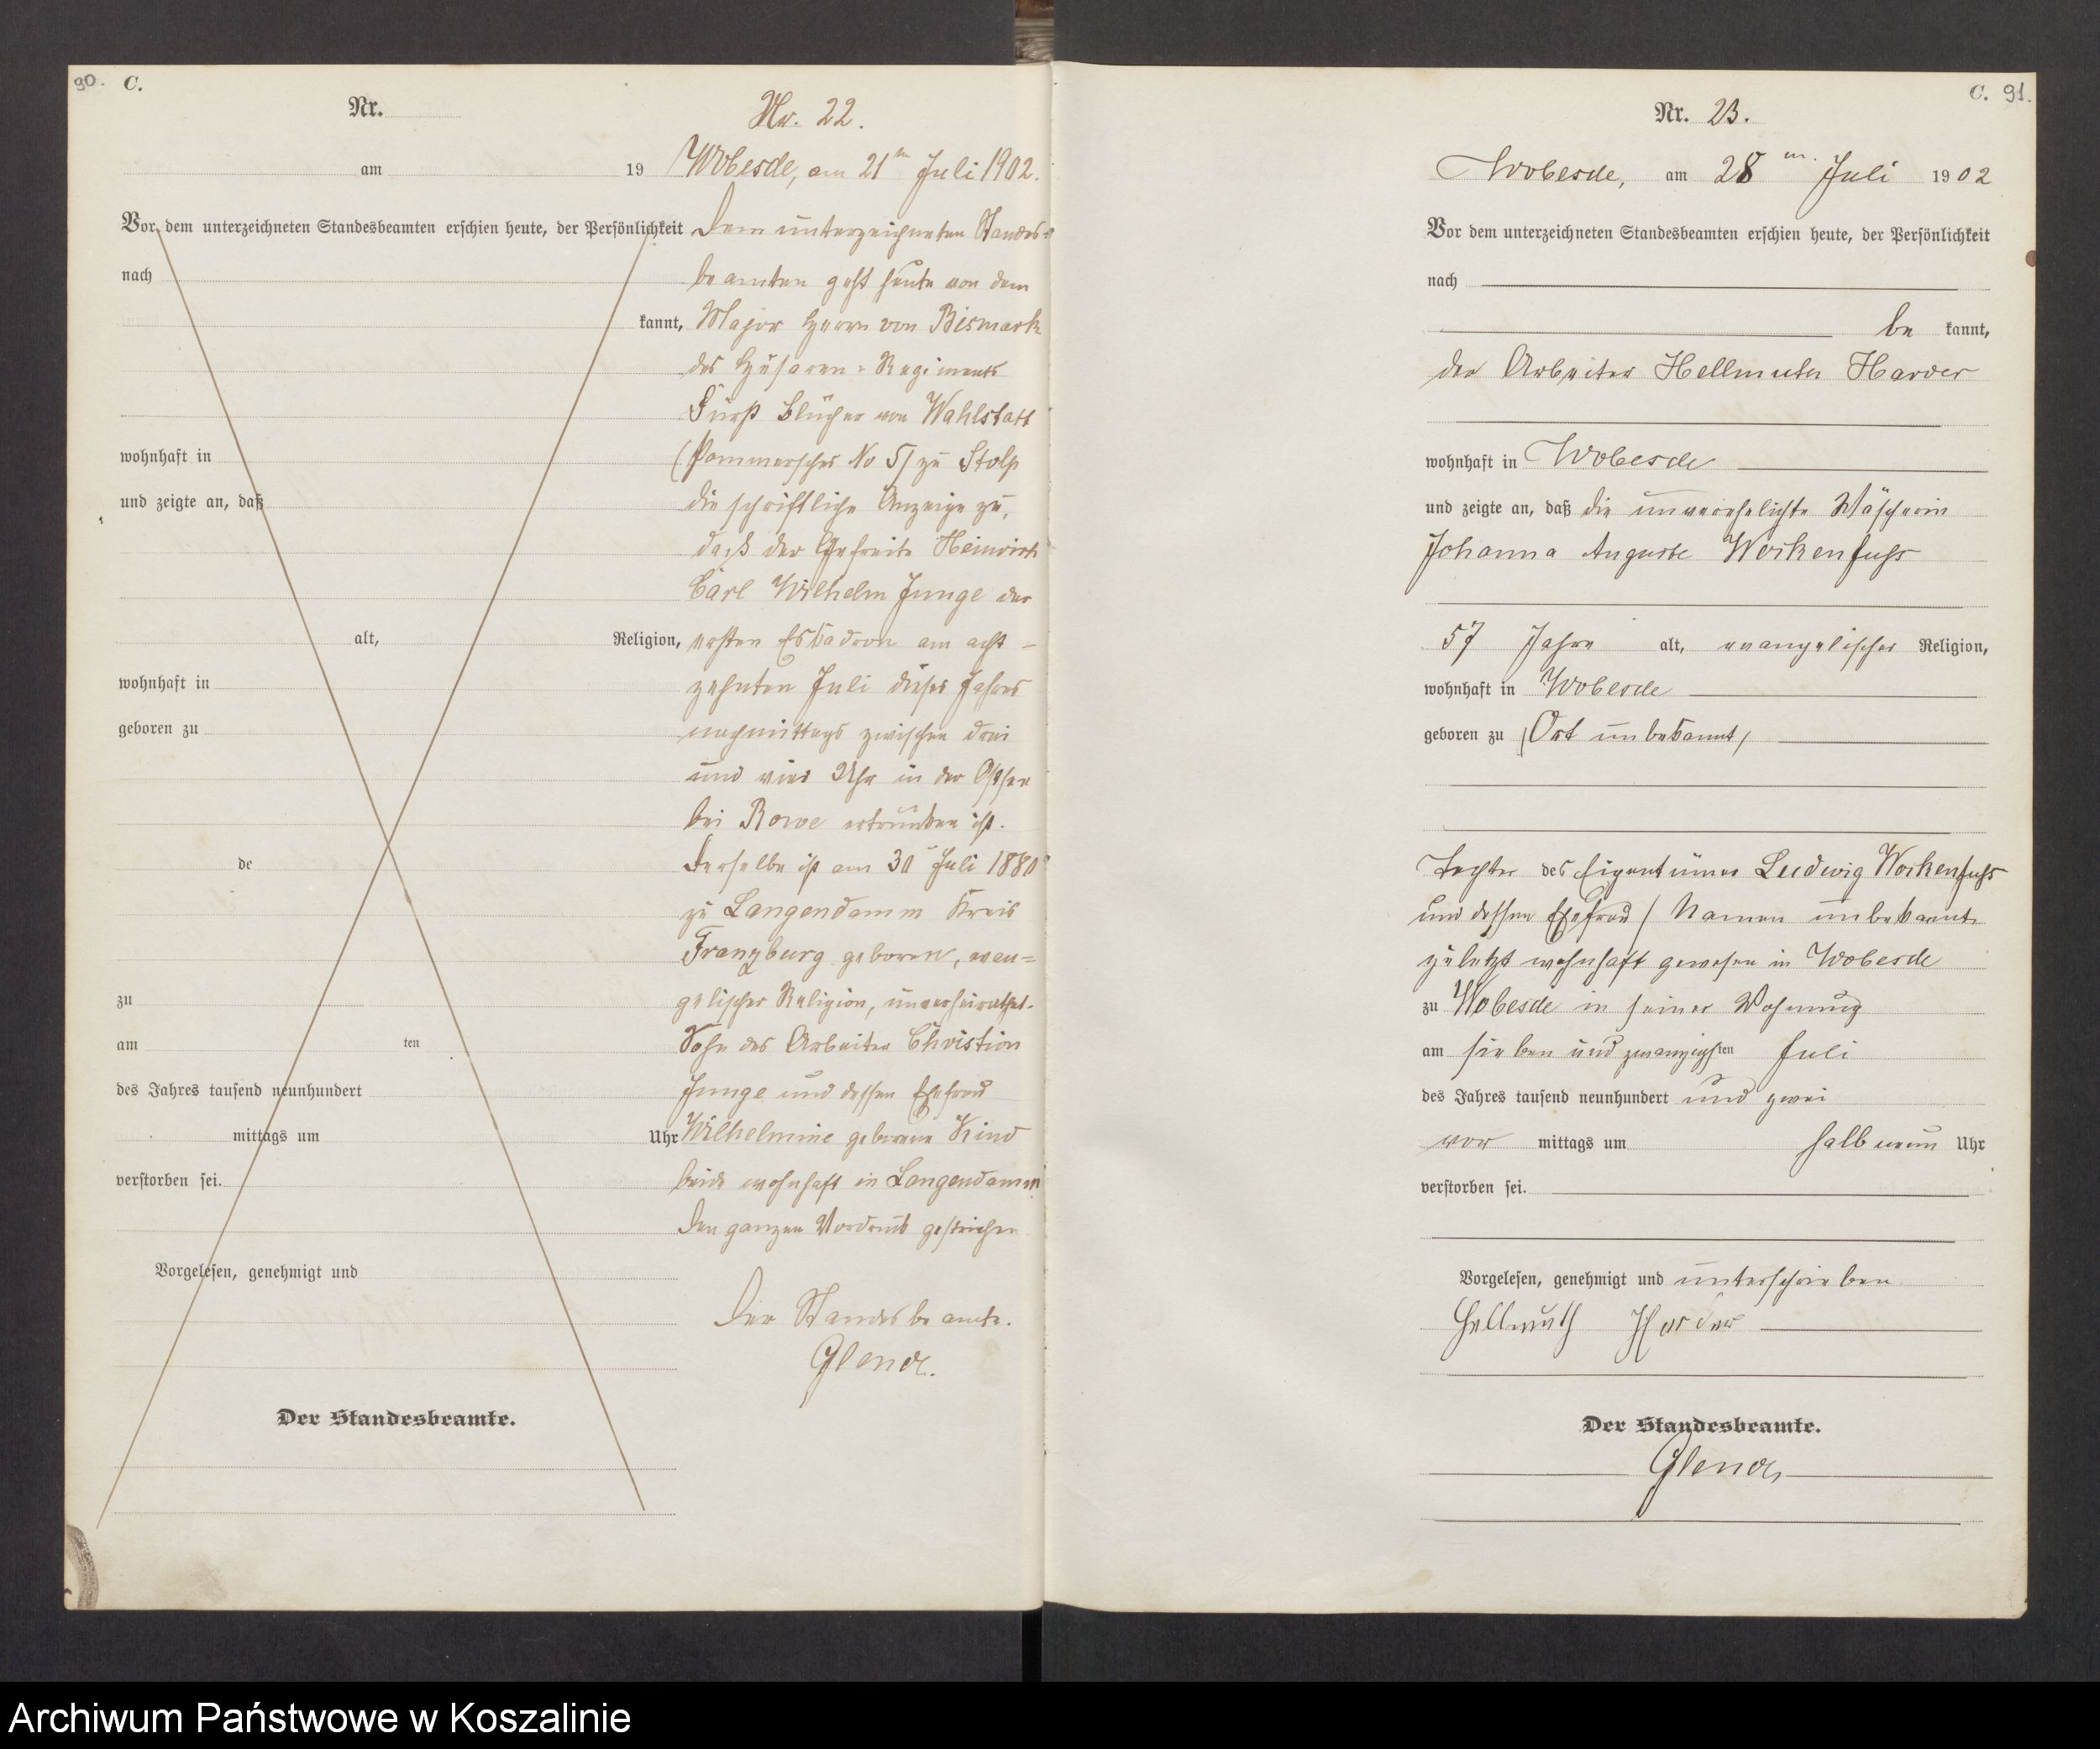 90. C.
Nr.
am 19
Vor dem unterzeichneten Standesbeamten erschien heute, der Persönlichkeit
nach
kannt,
wohnhaft in
und zeigte an, daß
alt, Religion,
wohnhaft in
geboren zu
de
zu
am ten
des Jahres tausend neunhundert
mittags um Uhr
verstorben sei.
Vorgelesen, genehmigt und
Der Standesbeamte.
Nr. 22.
Wobesde, am 21ten Juli 1902.
Dem unterzeichneten Standes-
beamten geht heute von dem
Major Herrn von Bismark
des Husaren-Regiments
Fürst Blücher von Wahlstatt
(Pommersches No 5) zu Stolp
die schriftliche Anzeige zu,
daß der Gefreite Heinrich
Carl Wilhelm Junge der
ersten Eskadron am acht-
zehnten Juli dieses Jahres
nachmittags zwischen drei
und vier Uhr in der Ostsee
bei Rowe ertrunken ist.
Derselbe ist am 30 Juli 1880
zu Langendamm Kreis
Franzburg geboren, evan=
gelischer Religion, unverheirathet.
Sohn des Arbeiter Christian
Junge und dessen Ehefrau
Wilhelmine geborene Kind
beide wohnhaft in Langendamm
Den ganzen Vordruck gestrichen
Der Standesbeamte.
Glende.
C. 91.
Nr. 23.
Wobesde, am 28ten Juli 1902
Vor dem unterzeichneten Standesbeamten erschien heute, der Persönlichkeit
nach
be kannt,
der Arbeiter Hellmuth Harder
wohnhaft in Wobesde
und zeigte an, daß die unverehelichte Wäscherin
Johanna Auguste Workenfuhs
57 Jahre alt, evangelischer Religion,
wohnhaft in Wobesde
geboren zu (Ort unbekannt)
Tochter des Eigentümer Ludwig Workenfuhs
und dessen Ehefrau (Namen unbekannt
zuletzt wohnhaft gewesen in Wobesde
zu Wobesde in seiner Wohnung
am sieben und zwanzigsten Juli
des Jahres tausend neunhundert und zwei
vor mittags um halb neun Uhr
verstorben sei.
Vorgelesen, genehmigt und unterschrieben
Hellmuth Harder
Der Standesbeamte.
Glende
Archiwum Państwowe w Koszalinie